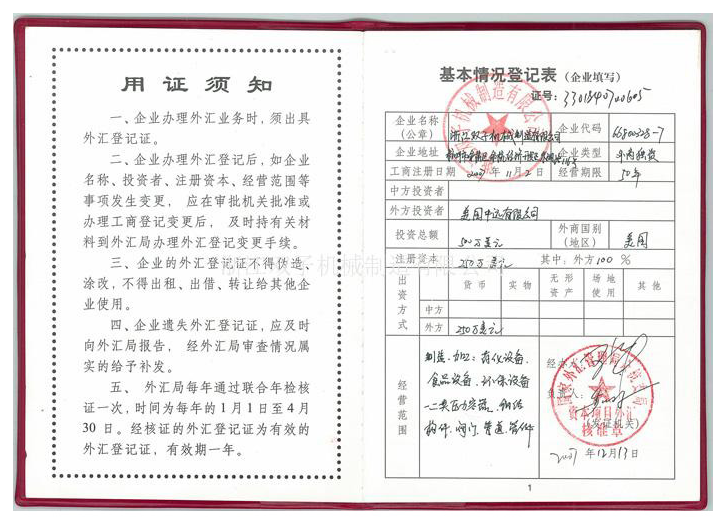 用证须知
一、企业办理外汇业务时,须出具
外汇登记证。
二、企业办理外汇登记后,如企业
名称、投资者、注册资本、经营范围等
事项发生变更，应在审批机关批准或
办理工商登记变更后，及时持有关材
料到外汇局办理外汇登记变更手续。
三、企业的外汇登记证不得伪造、
涂改,不得出租、出借、转让给其他企
业使用。
四、企业遗失外汇登记证,应及时
向外汇局报告，经外汇局审查情况属
实的给予补发。
五、外汇局每年通过联合年检核
证一次,时间为每年的1月1日至4月
30日。经核证的外汇登记证为有效的
外汇登记证，有效期一年。
浙江双子机械制造有限公司
基本情况登记表(企业填写)
证号:
企业名称(公章) 浙江双子机械制造有限公司 企业代码
企业地址 企业类型
工商注册日期 2007年11月2日 经营期限 50年
中方投资者
外方投资者 美国中远有限公司
投资总额 500万美元 外商国别(地区) 美国
注册资本 250万美元 其中:外方100%
出资方式 货币 实物 无形资产 场地使用 其他
中方
外方 250万美元
经营范围
制造、加工:
食品设备、环保设备
一二类压力容器、钢结
构件、阀门、管道、管件
经办人:
负责人:
(发证机关)
资本项目外汇
核准章
2007年12月13日
1